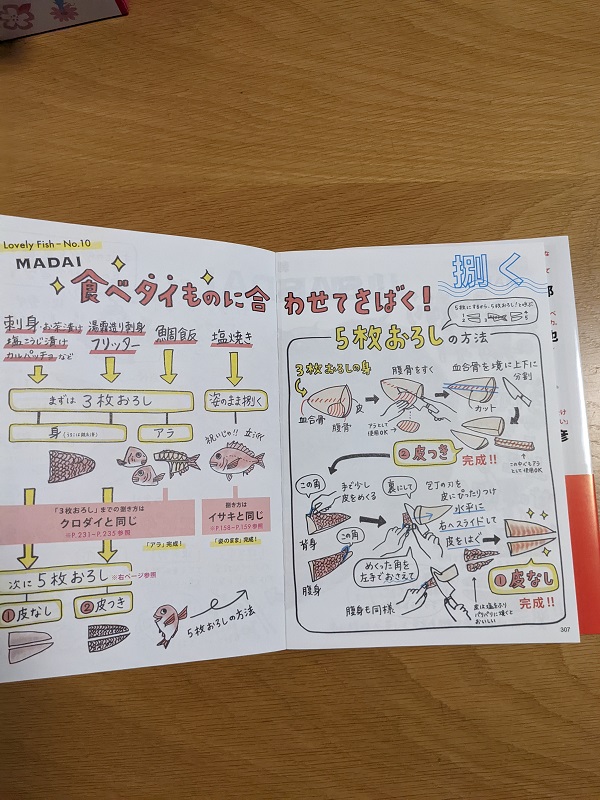 Lovely Fish – No.10
MADAI
食べタイものに合わせてさばく!
捌く
刺身・お茶漬け
塩こうじ漬け
カルパッチョなど
湯霜造り刺身
フリッター
鯛飯
塩焼き
まずは3枚おろし
姿のまま捌く
身
アラ
祝いじゃ!!
「3枚おろし」までの捌き方は
クロダイと同じ
※P.231〜P.235参照
「アラ」完成!
捌き方は
イサキと同じ
※P.158〜P.159参照
「姿のまま」完成!
次に5枚おろし ※右ページ参照
①皮なし
②皮つき
5枚おろしの方法
5枚にするから、5枚おろし!と呼ぶ
5枚おろしの方法
3枚おろしの身
血合骨
皮
腹骨
腹骨をすく
アラとして
使用OK
血合骨を境に上下に
分割
カット
この中心もアラ
として使用OK
②皮つき
完成!!
この角
手で少し
皮をめくる
背身
この角
腹身
裏にして
めくった角を
左手でおさえて
腹身も同様
包丁の刃を
皮にぴったりつけ
水平に
右へスライドして
皮をはぐ
皮は塩をふり
パリパリに焼くと
おいしい
①皮なし
完成!!
307